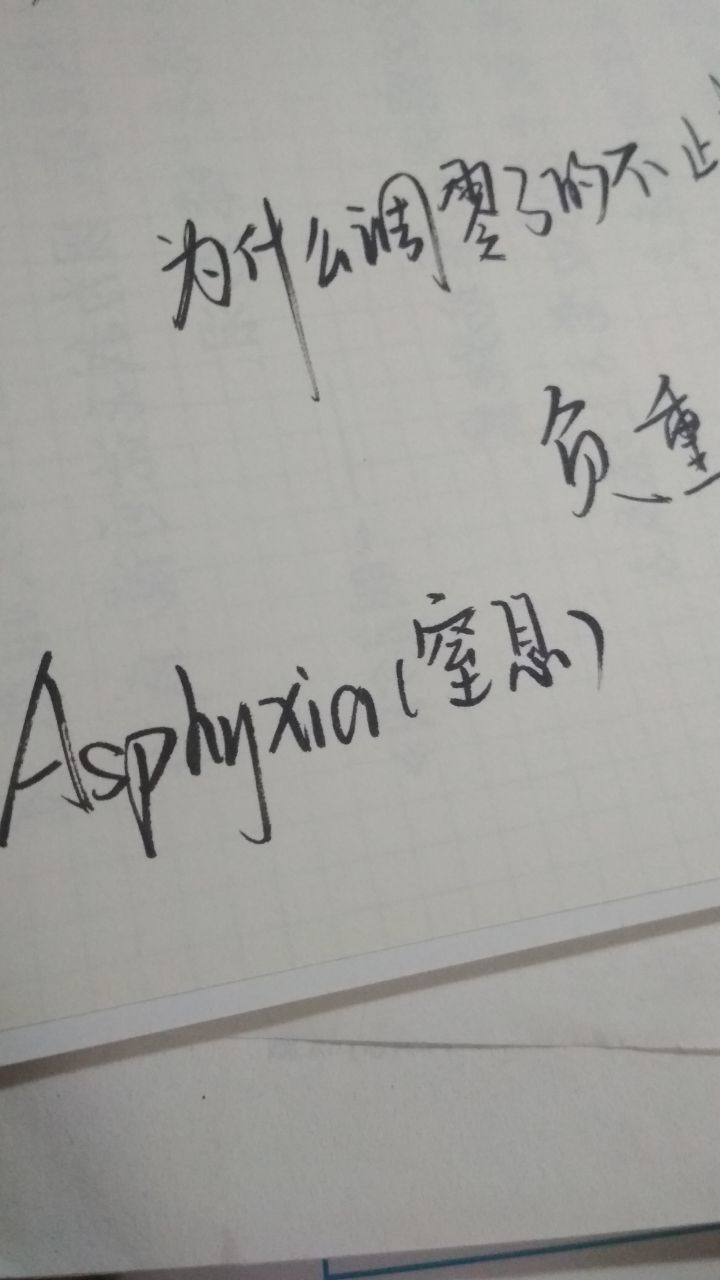 为什么调零了的不止
负重
Asphyxia(窒息)